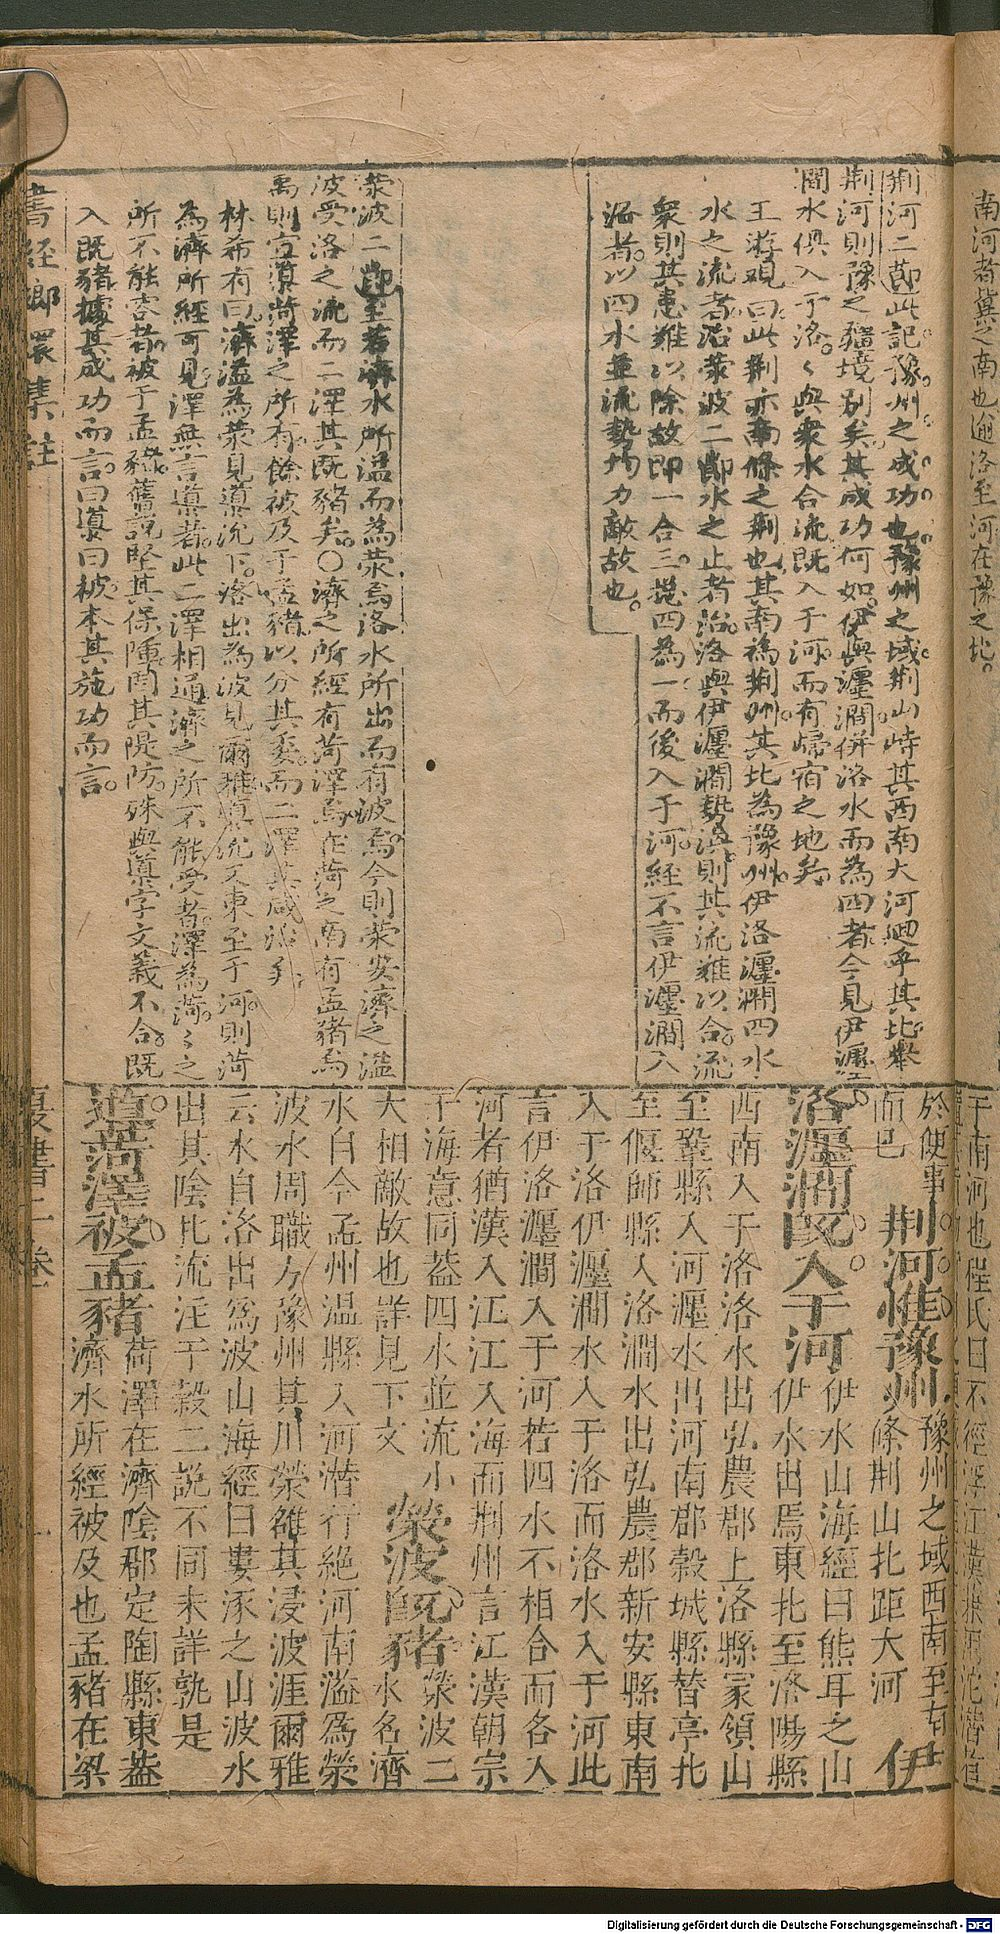 南河者冀之南也逾洛至河在豫之北。
荆河二節此記豫州之成功也豫州之域荆山峙其西南大河廻乎其北舉
荆河則豫之疆境别矣其成功何如伊與瀍澗併洛水而為四者今見伊瀍
澗水俱入于洛。々與衆水合流既入于河。而有歸宿之地矣。
王游觀曰此荆亦南條之荆也其南為荆州其北為豫州伊洛瀍澗四水
水之流者。沿滎波二節水之止者治。洛與伊瀍澗勢漠則其流難以合。流
衆則其患難以除故即一合三。挽四為一而後入于河。經不言伊瀍澗入
洛者。以四水並流勢均力敵故也。
滎波二節至若濟水所溢而為滎焉洛水所出而有波焉。今則滎安濟之溢
波受洛之流而二澤其既豬矣。〇濟之所經有荷澤焉在荷之南有孟豬焉
禹則宣導荷澤之所有。餘被及于孟豬以分其委。而二澤其咸治矣
林希有曰。濟溢為滎見導沇下。洛出為波見爾雅導沇又東至于河。則荷
為濟所經可見。澤無言導者。此二澤相通濟之所不能受者。澤為荷。々之
所不能容者。被于孟豬舊説堅其保障固其隄防。殊與導字文義不合。既
入既豬據其成功而言。曰導曰被。本其施功而言。
書經鄉環集註
于南河也程氏曰不經浮江漢
於便事而巳
荆河惟豫州
豫州之域西南至南
條荆山北距大河
伊
洛瀍澗既入于河
伊水山海經曰熊耳之山
伊水出焉東北至洛陽縣
西南入于洛洛水出弘農郡上洛縣冢領山
至鞏縣入河瀍水出河南郡榖城縣替亭北
至偃師縣入洛澗水出弘農郡新安縣東南
入于洛伊瀍澗水入于洛而洛水入于河此
言伊洛瀍澗入于河若四水不相合而各入
河者猶漢入江江入海而荆州言江漢朝宗
于海意同葢四水並流小
大相敵故也詳見下文
滎波既豬
滎波二
水名濟
水自今孟州温縣入河潛行絶河南溢為滎
波水周職方豫州其川滎雒其浸波溠爾雅
云水自洛出為波山海經曰婁涿之山波水
出其陰北流注于穀二説不同未詳孰是
導荷澤被孟豬
荷澤在濟陰郡定陶縣東葢
濟水所經被及也孟豬在梁
夏書二卷
Digitalisierung gefördert durch die Deutsche Forschungsgemeinschaft - DFG